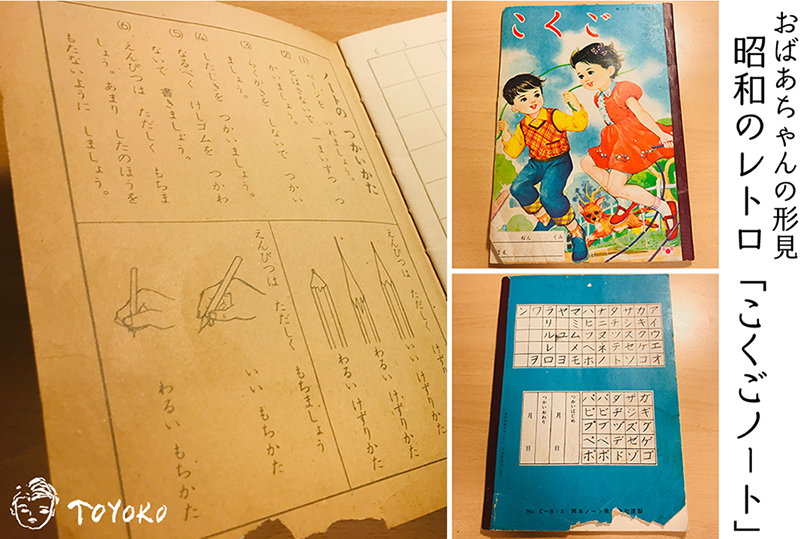 おばあちゃんの形見
昭和のレトロ「こくごノート」
こくご
ねん くみ
ノートの つかいかた
(1) いれましょう。
(2) とばさないで 一まいずつ つ
かいましょう。
(3) らくがきを しないで つかい
ましょう。
(4) したじきを つかいましょう。
(5) なるべく けしゴムを つかわ
ないで 書きましょう。
(6) えんぴつは ただしく もちま
しょう。あまり したのほうを
もたないように しましょう。
えんぴつは ただしく
いい けずりかた
わるい けずりかた
えんぴつは ただしく もちましょう
いい もちかた
わるい もちかた
アイウエオ
カキクケコ
サシスセソ
タチツテト
ナニヌネノ
ハヒフヘホ
マミムメモ
ヤユヨ
ラリルレロ
ワヲ
ン
ガギグゲゴ
ザジズゼゾ
ダヂヅデド
バビブベボ
パピプペポ
つかいはじめ 月 日
つかいおわり 月 日
岡本ノート
TOYOKO